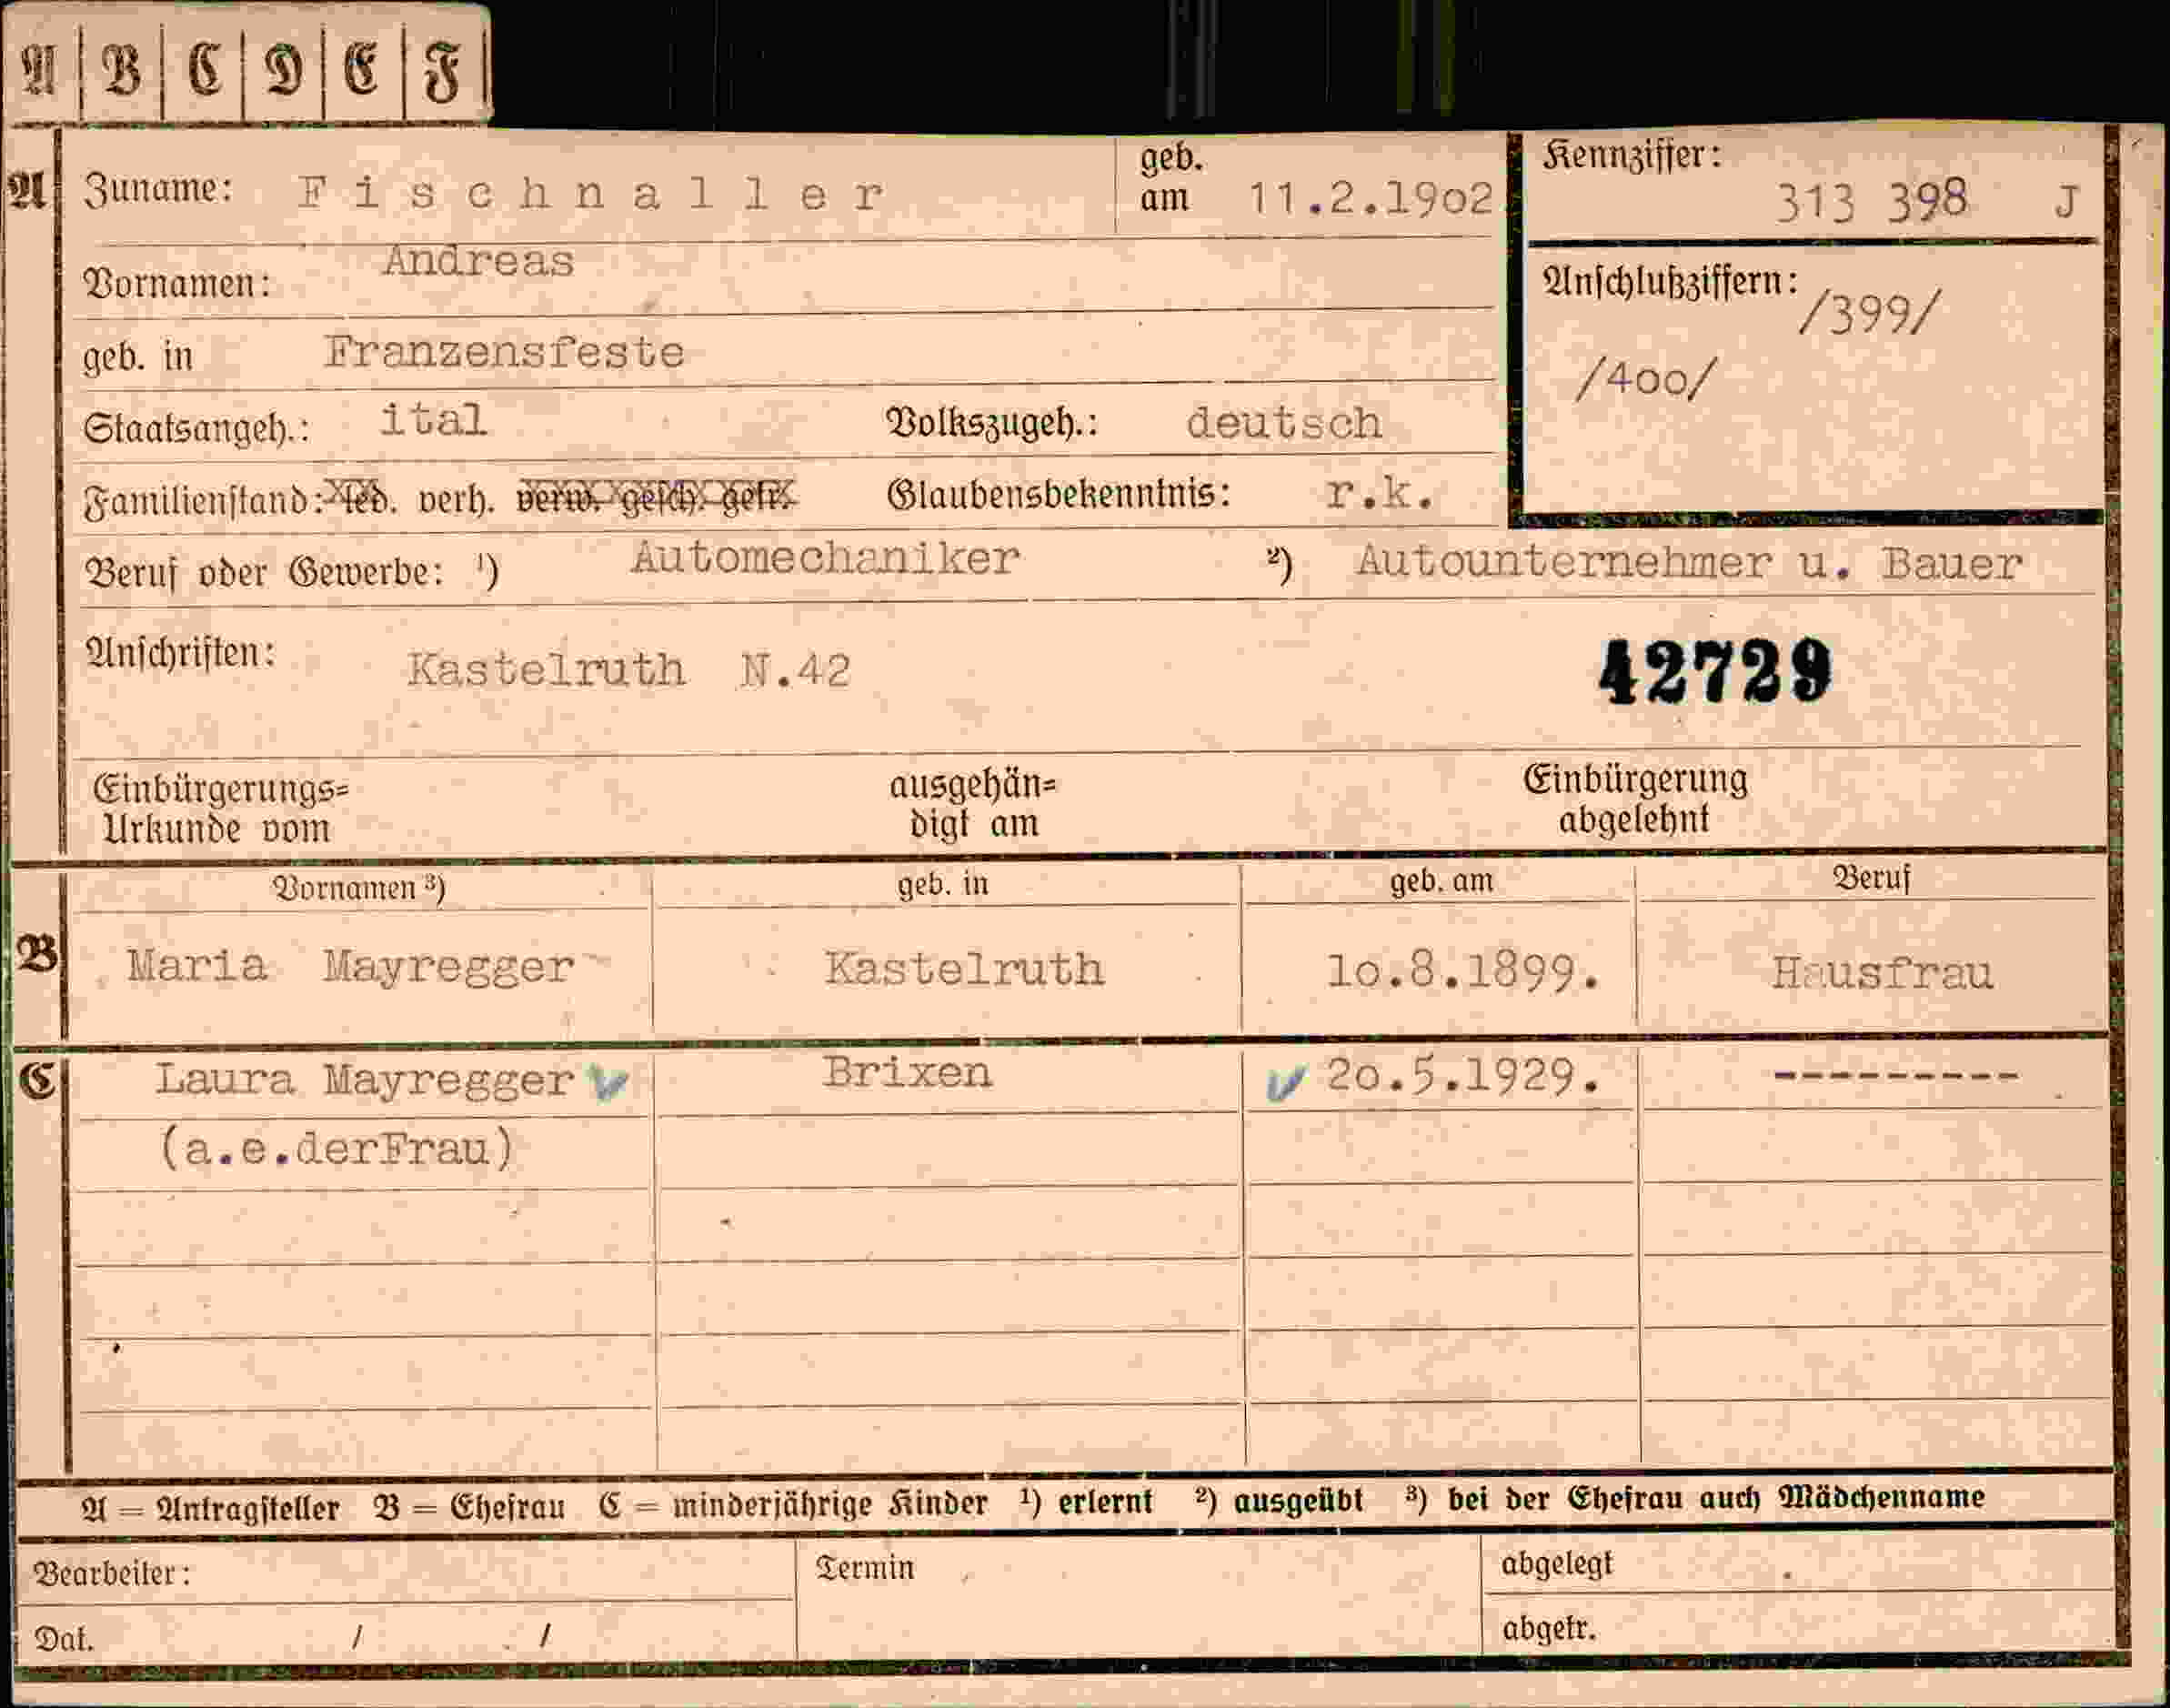 A B C D E F
A Zuname: Fischnaller geb. am 11.2.19o2 Kennziffer: 313 398 J
Vornamen: Andreas Anschlußziffern: /399/
geb. in Franzensfeste /4oo/
Staatsangeh.: ital Volkszugeh.: deutsch
Familienstand: led. verh. verw. gesch. getr. Glaubensbekenntnis: r.k.
Beruf oder Gewerbe: ¹) Automechaniker ²) Autounternehmer u. Bauer
Anschriften: Kastelruth N.42 42729
Einbürgerungs= ausgehän= Einbürgerung
Urkunde vom digt am abgelehnt
Vornamen ³) geb. in geb. am Beruf
B Maria Mayregger Kastelruth 1o.8.1899. Hausfrau
C Laura Mayregger Brixen 2o.5.1929. ---------
(a.e.derFrau)
A = Antragsteller B = Ehefrau C = minderjährige Kinder ¹) erlernt ²) ausgeübt ³) bei der Ehefrau auch Mädchenname
Bearbeiter: Termin abgelegt
Dat. / / abgetr.